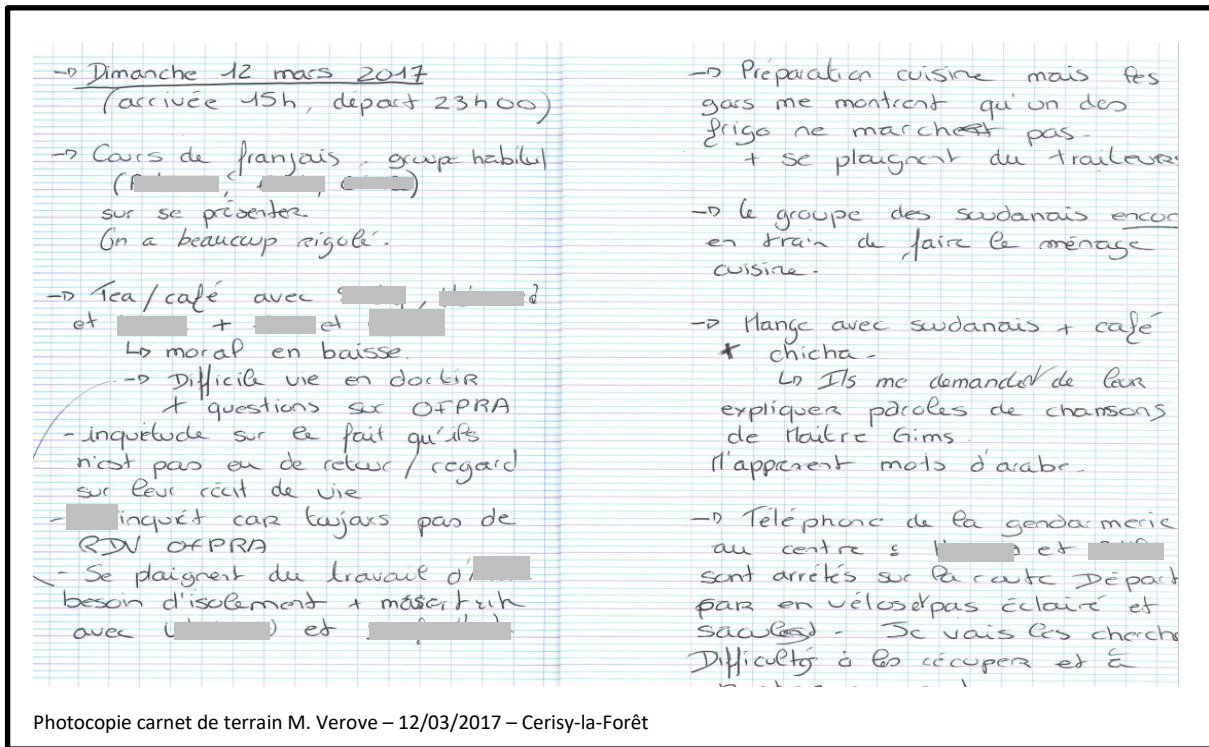 -> Dimanche 12 mars 2017
(arrivée 15h, départ 23h00)
-> Cours de français, groupe habituel
(
sur se présenter.
On a beaucoup rigolé.
-> Tea/café avec
et + et
↳ moral en baisse.
-> Difficile vie en
+ questions sur OFPRA
- inquiétude sur le fait qu'ils
n'est pas eu de retour / regard
sur leur récit de vie
- inquiet car toujours pas de
RDV OFPRA
- Se plaignent du travail d'
besoin d'isolement +
avec et
-> Préparation cuisine mais les
gars me montrent qu'un des
frigo ne marche pas.
+ se plaignent du traiteur
-> le groupe des soudanais encor
en train de faire le ménage
cuisine.
-> Mange avec soudanais + café
+ chicha -
↳ Ils me demandent de leur
expliquer paroles de chansons
de Maitre Gims.
M'apprenent mots d'arabe.
-> Téléphone de la gendarmerie
au centre : et
sont arrétés sur la route Départ
par en vélos et pas éclairé et
saouls - Je vais les cherche
Difficultés à les récuperer et à
Photocopie carnet de terrain M. Verove – 12/03/2017 – Cerisy-la-Forêt